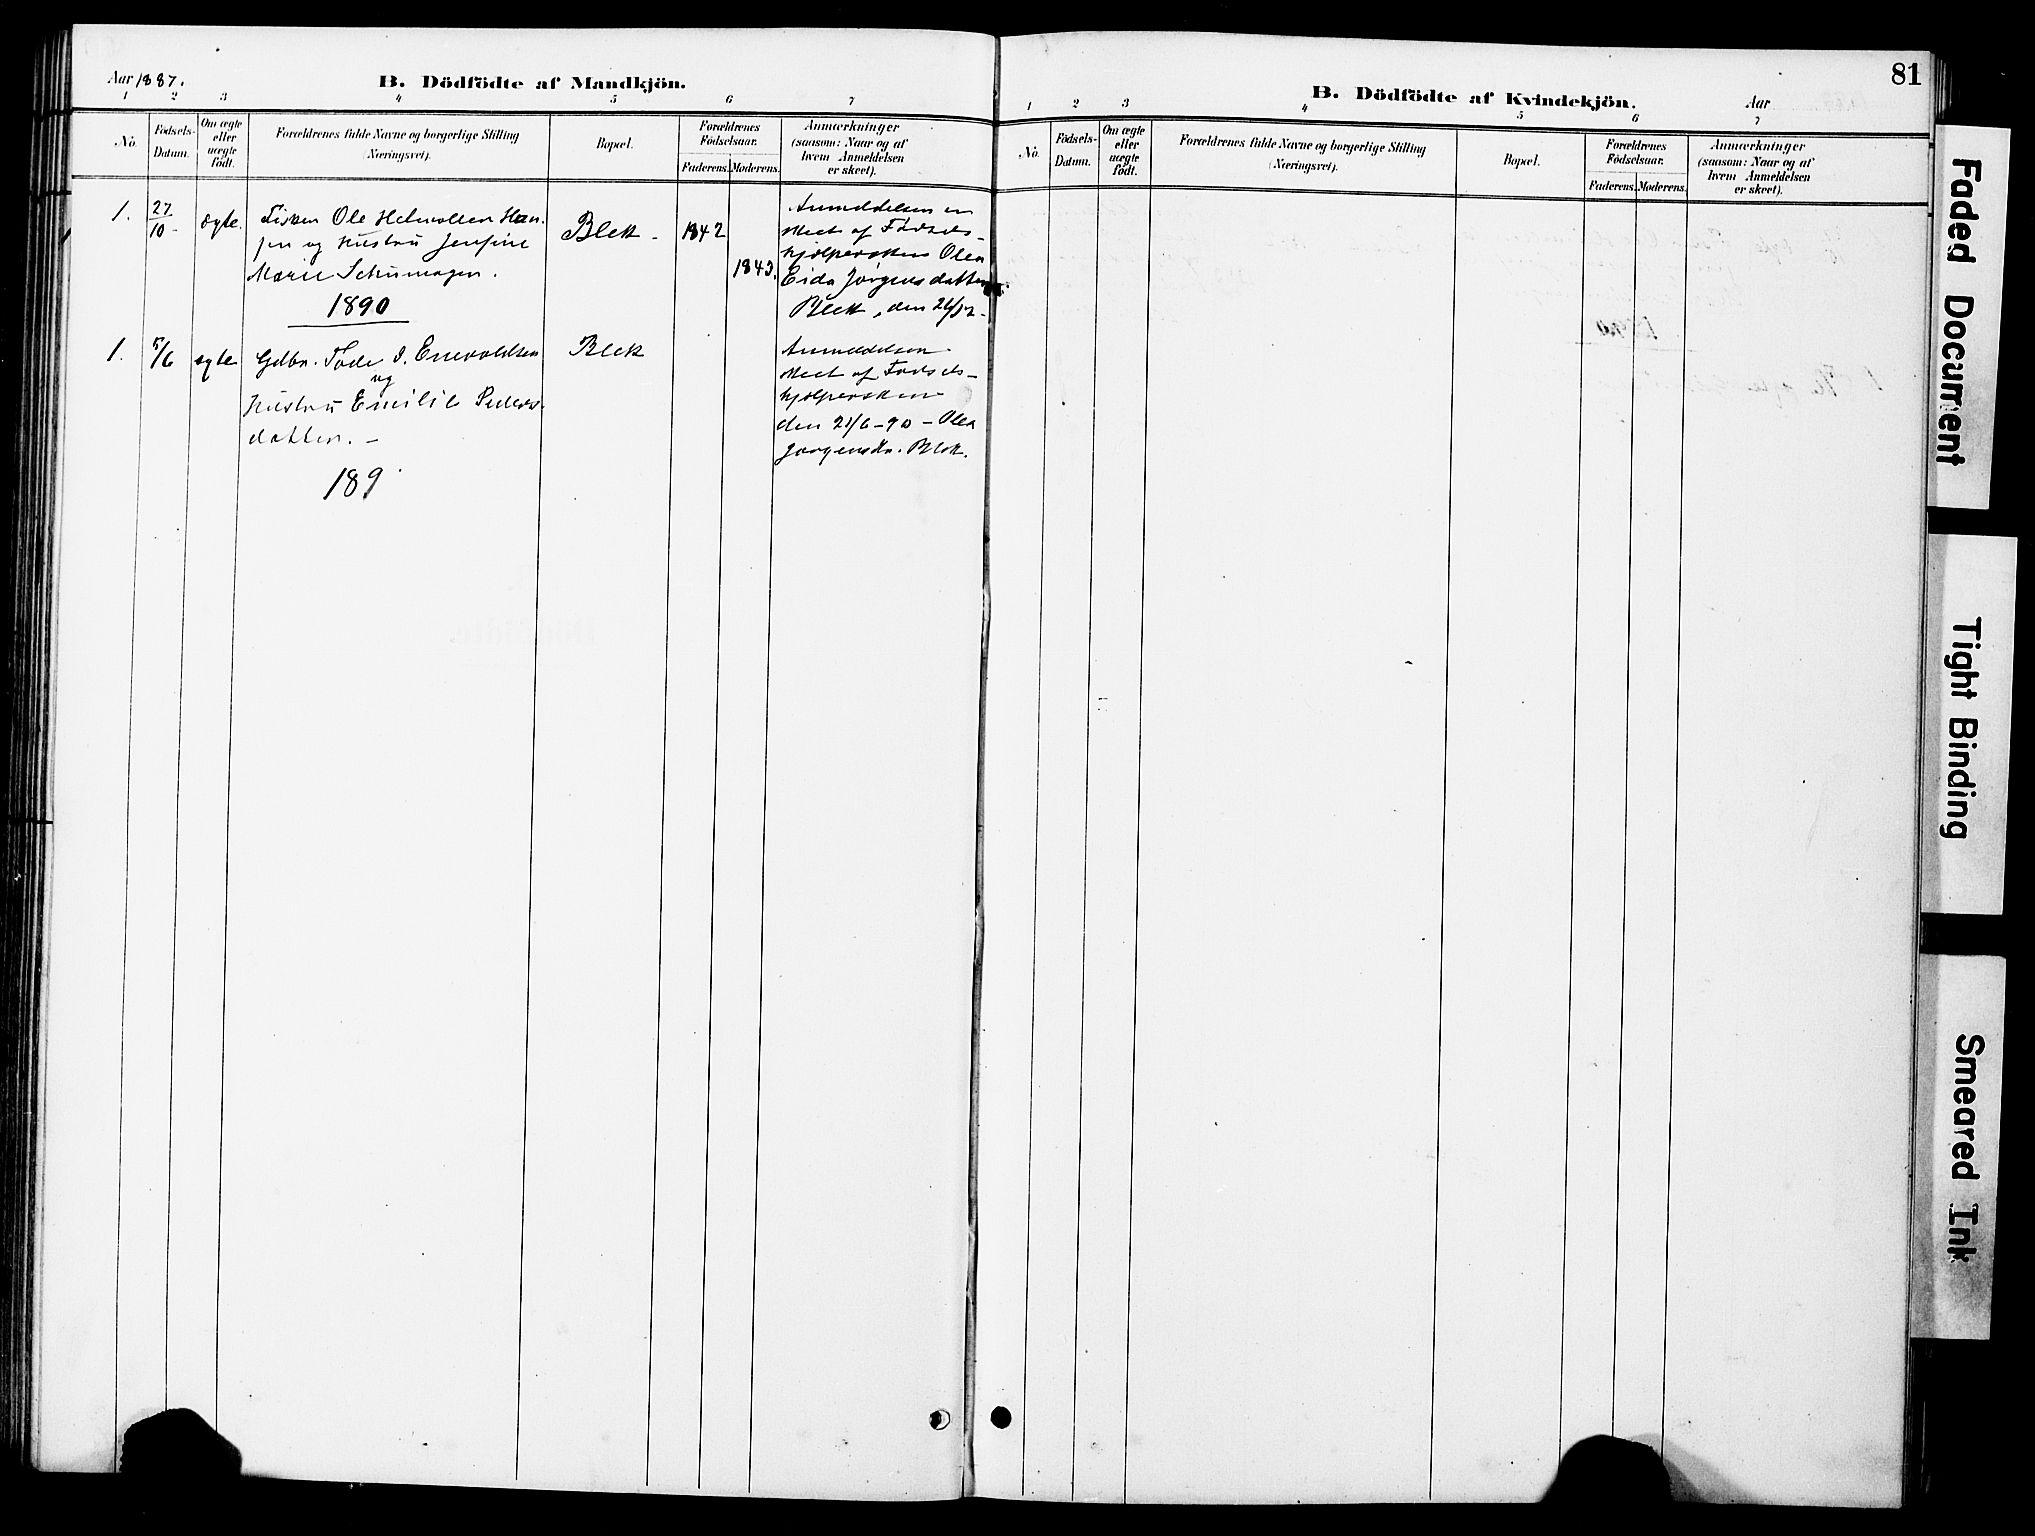 Aar 1887.
B. Dödfödte af Mandkjön.
1 2 3 4 5 6 7
No.
Födsels-
Datum.
Om ægte
eller
uægte
födt.
Forældrenes fulde Navne og borgerlige Stilling
(Næringsvei).
Bopæl.
Forældrenes
Födselsaar.
Faderens. Moderens.
Anmærkninger
(saasom: Naar og af
hvem Anmeldelsen
er skeet).
1. 27/10 - ægte. Fisker Ole Helvolsen Han-
sen og Hustru Jensine
Marie Schumogen.
Bleik - 1842 1843.
Anmeldelsen er
skeet af Fødsels-
hjælpersken Olea
Eida Jørgensdatter
Bleik, den 26/12-
1890
1. 5/6 ægte Gdbr. Tøde J. Enevoldsen
og
Hustru Emilie Peders-
datter. -
Bleik
Anmeldelsen
skeet af Fødsels-
hjælpersken
den 21/6-90 - Olea
Jørgensdr. Bleik.
189
81
B. Dödfödte af Kvindekjön.
Aar
1 2 3 4 5 6 7
No.
Födsels-
Datum.
Om ægte
eller
uægte
födt.
Forældrenes fulde Navne og borgerlige Stilling
(Næringsvei).
Bopæl.
Forældrenes
Födselsaar.
Faderens. Moderens.
Anmærkninger
(saasom: Naar og af
hvem Anmeldelsen
er skeet).
Faded Document
Tight Binding
Smeared Ink